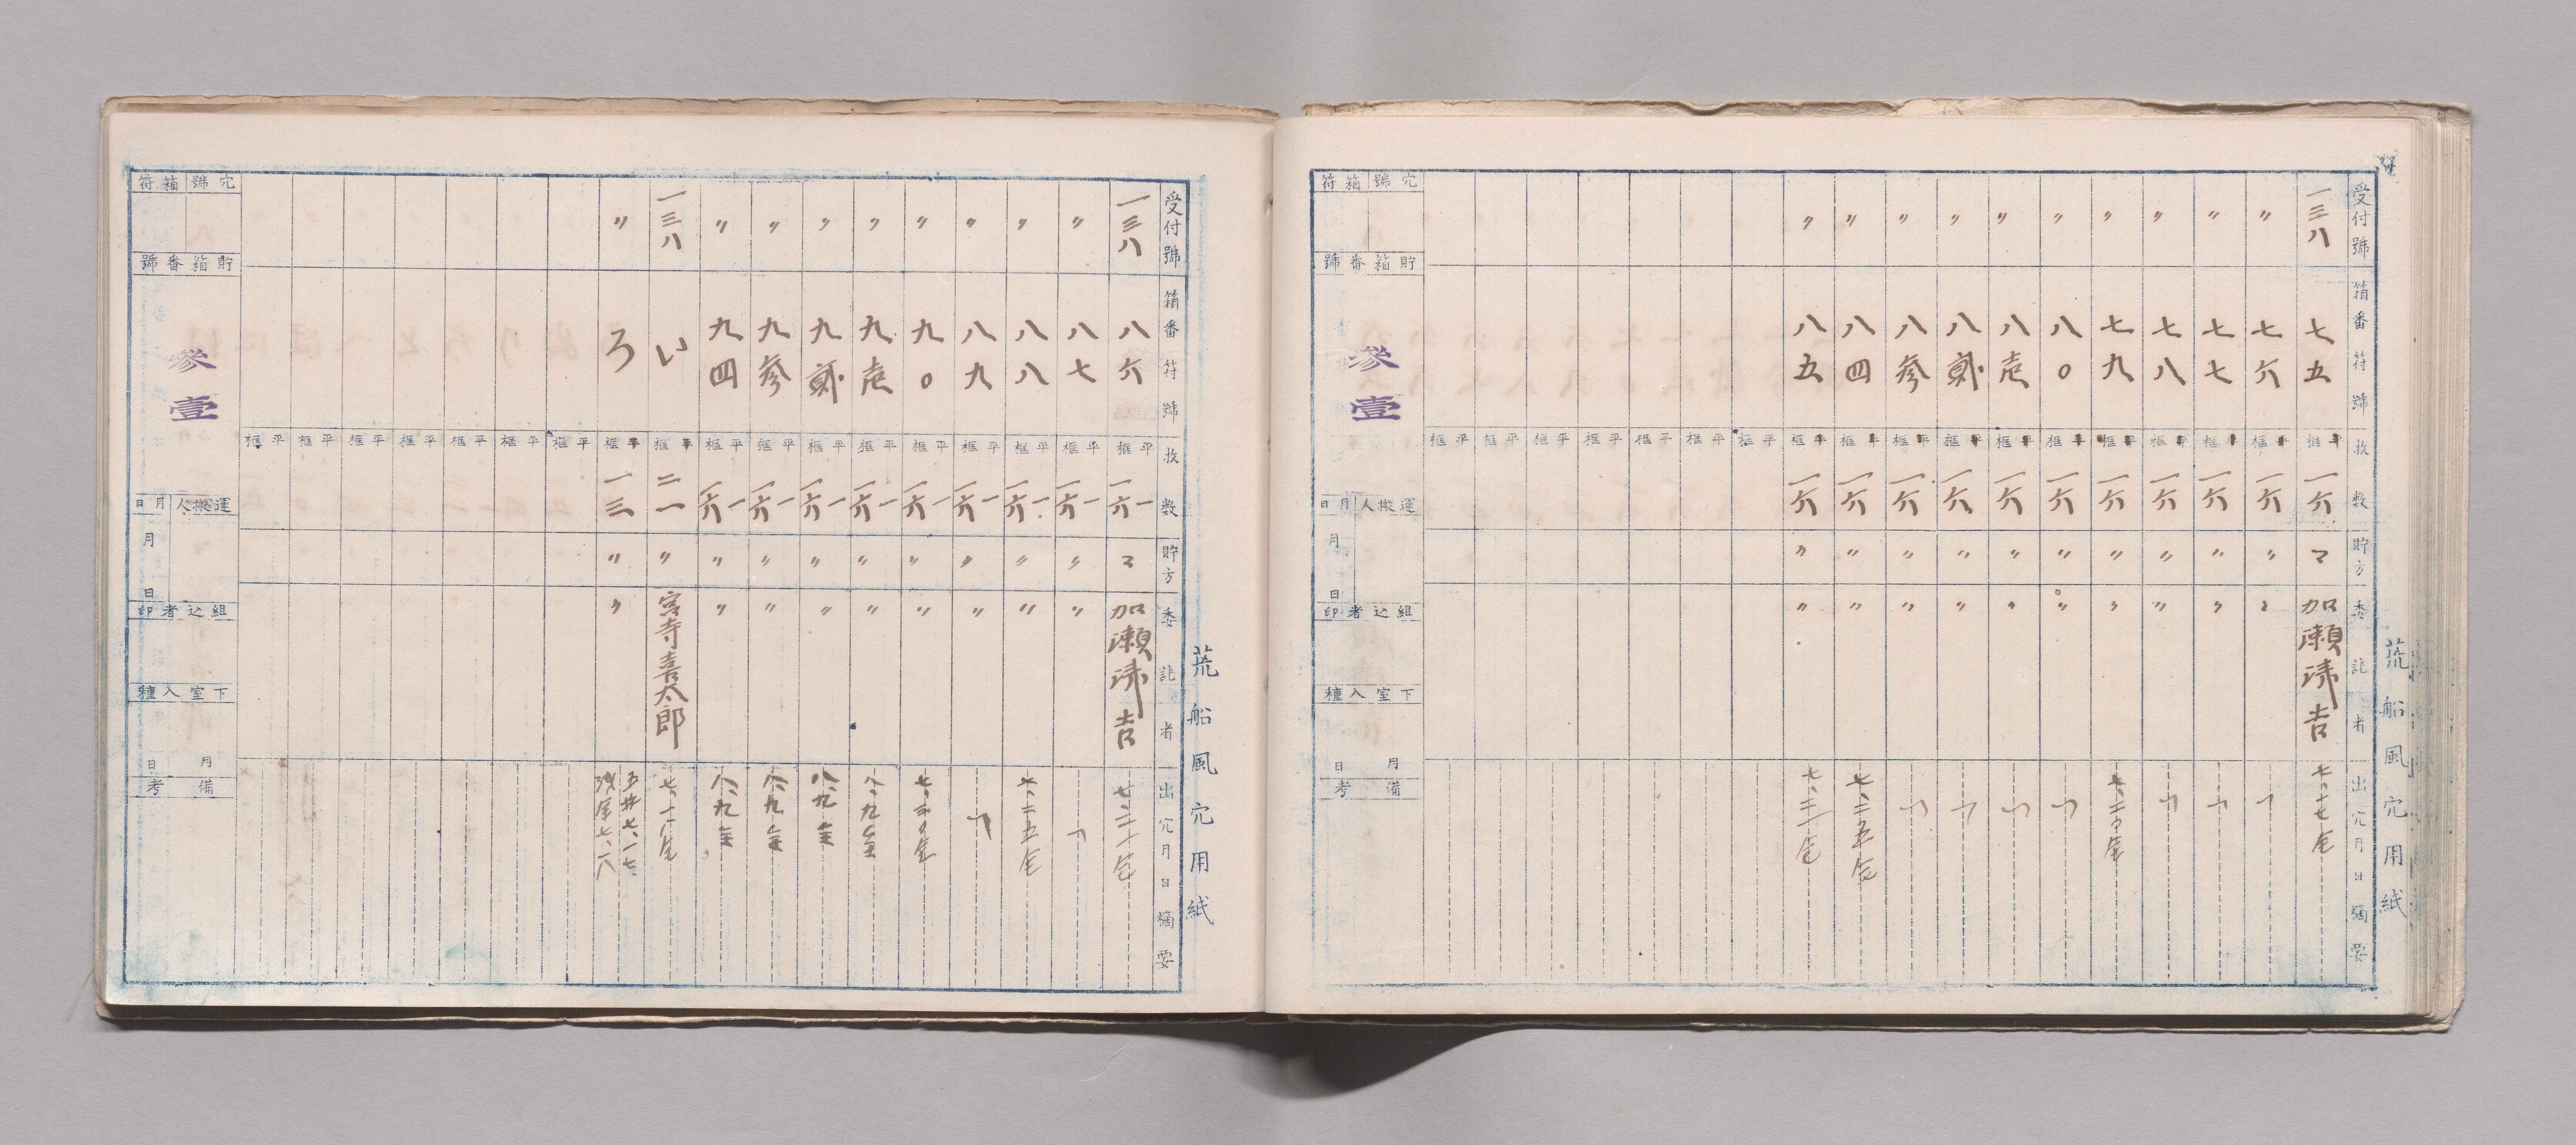 受付號
箱番符號
枚数
貯方
委託者
出穴月日摘要
荒船風穴用紙
一三八 七五 平框 一六 〃 加瀬清吉 七、十七全
〃 七六 平框 一六 〃 〃
〃 七七 平框 一六 〃 〃
〃 七八 平框 一六 〃 〃
〃 七九 平框 一六 〃 〃
〃 八〇 平框 一六 〃 〃
〃 八壱 平框 一六 〃 〃
〃 八貳 平框 一六 〃 〃
〃 八参 平框 一六 〃 〃
〃 八四 平框 一六 〃 〃 七、二五全
〃 八五 平框 一六 〃 〃
平框
平框
平框
平框
平框
平框
平框
穴號 箱符
貯箱番號
參壹
運搬人 月日
月 日
組込者印
下室入種
月 日
備考
受付號
箱番符號
枚数
貯方
委託者
出穴月日摘要
荒船風穴用紙
一三八 八六 平框 一 一六 加瀬清吉
〃 八七 平框 一 一六 〃 〃
〃 八八 平框 一 一六 〃 〃 七、二五全
〃 八九 平框 一 一六 〃 〃
〃 九〇 平框 一 一六 〃 〃
〃 九壱 平框 一 一六 〃 〃 八、九全
〃 九貳 平框 一 一六 〃 〃 八、九全
〃 九参 平框 一 一六 〃 〃 八、九全
〃 九四 平框 一 一六 〃 〃 八、九全
一三八 い 平框 二一 〃 宮寺喜太郎
〃 ろ 平框 一三 〃 〃 五廾七、一七 残全七、一八
平框
平框
平框
平框
平框
平框
平框
穴號 箱符
貯箱番號
參壹
運搬人 月日
月 日
組込者印
下室入種
月 日
備考